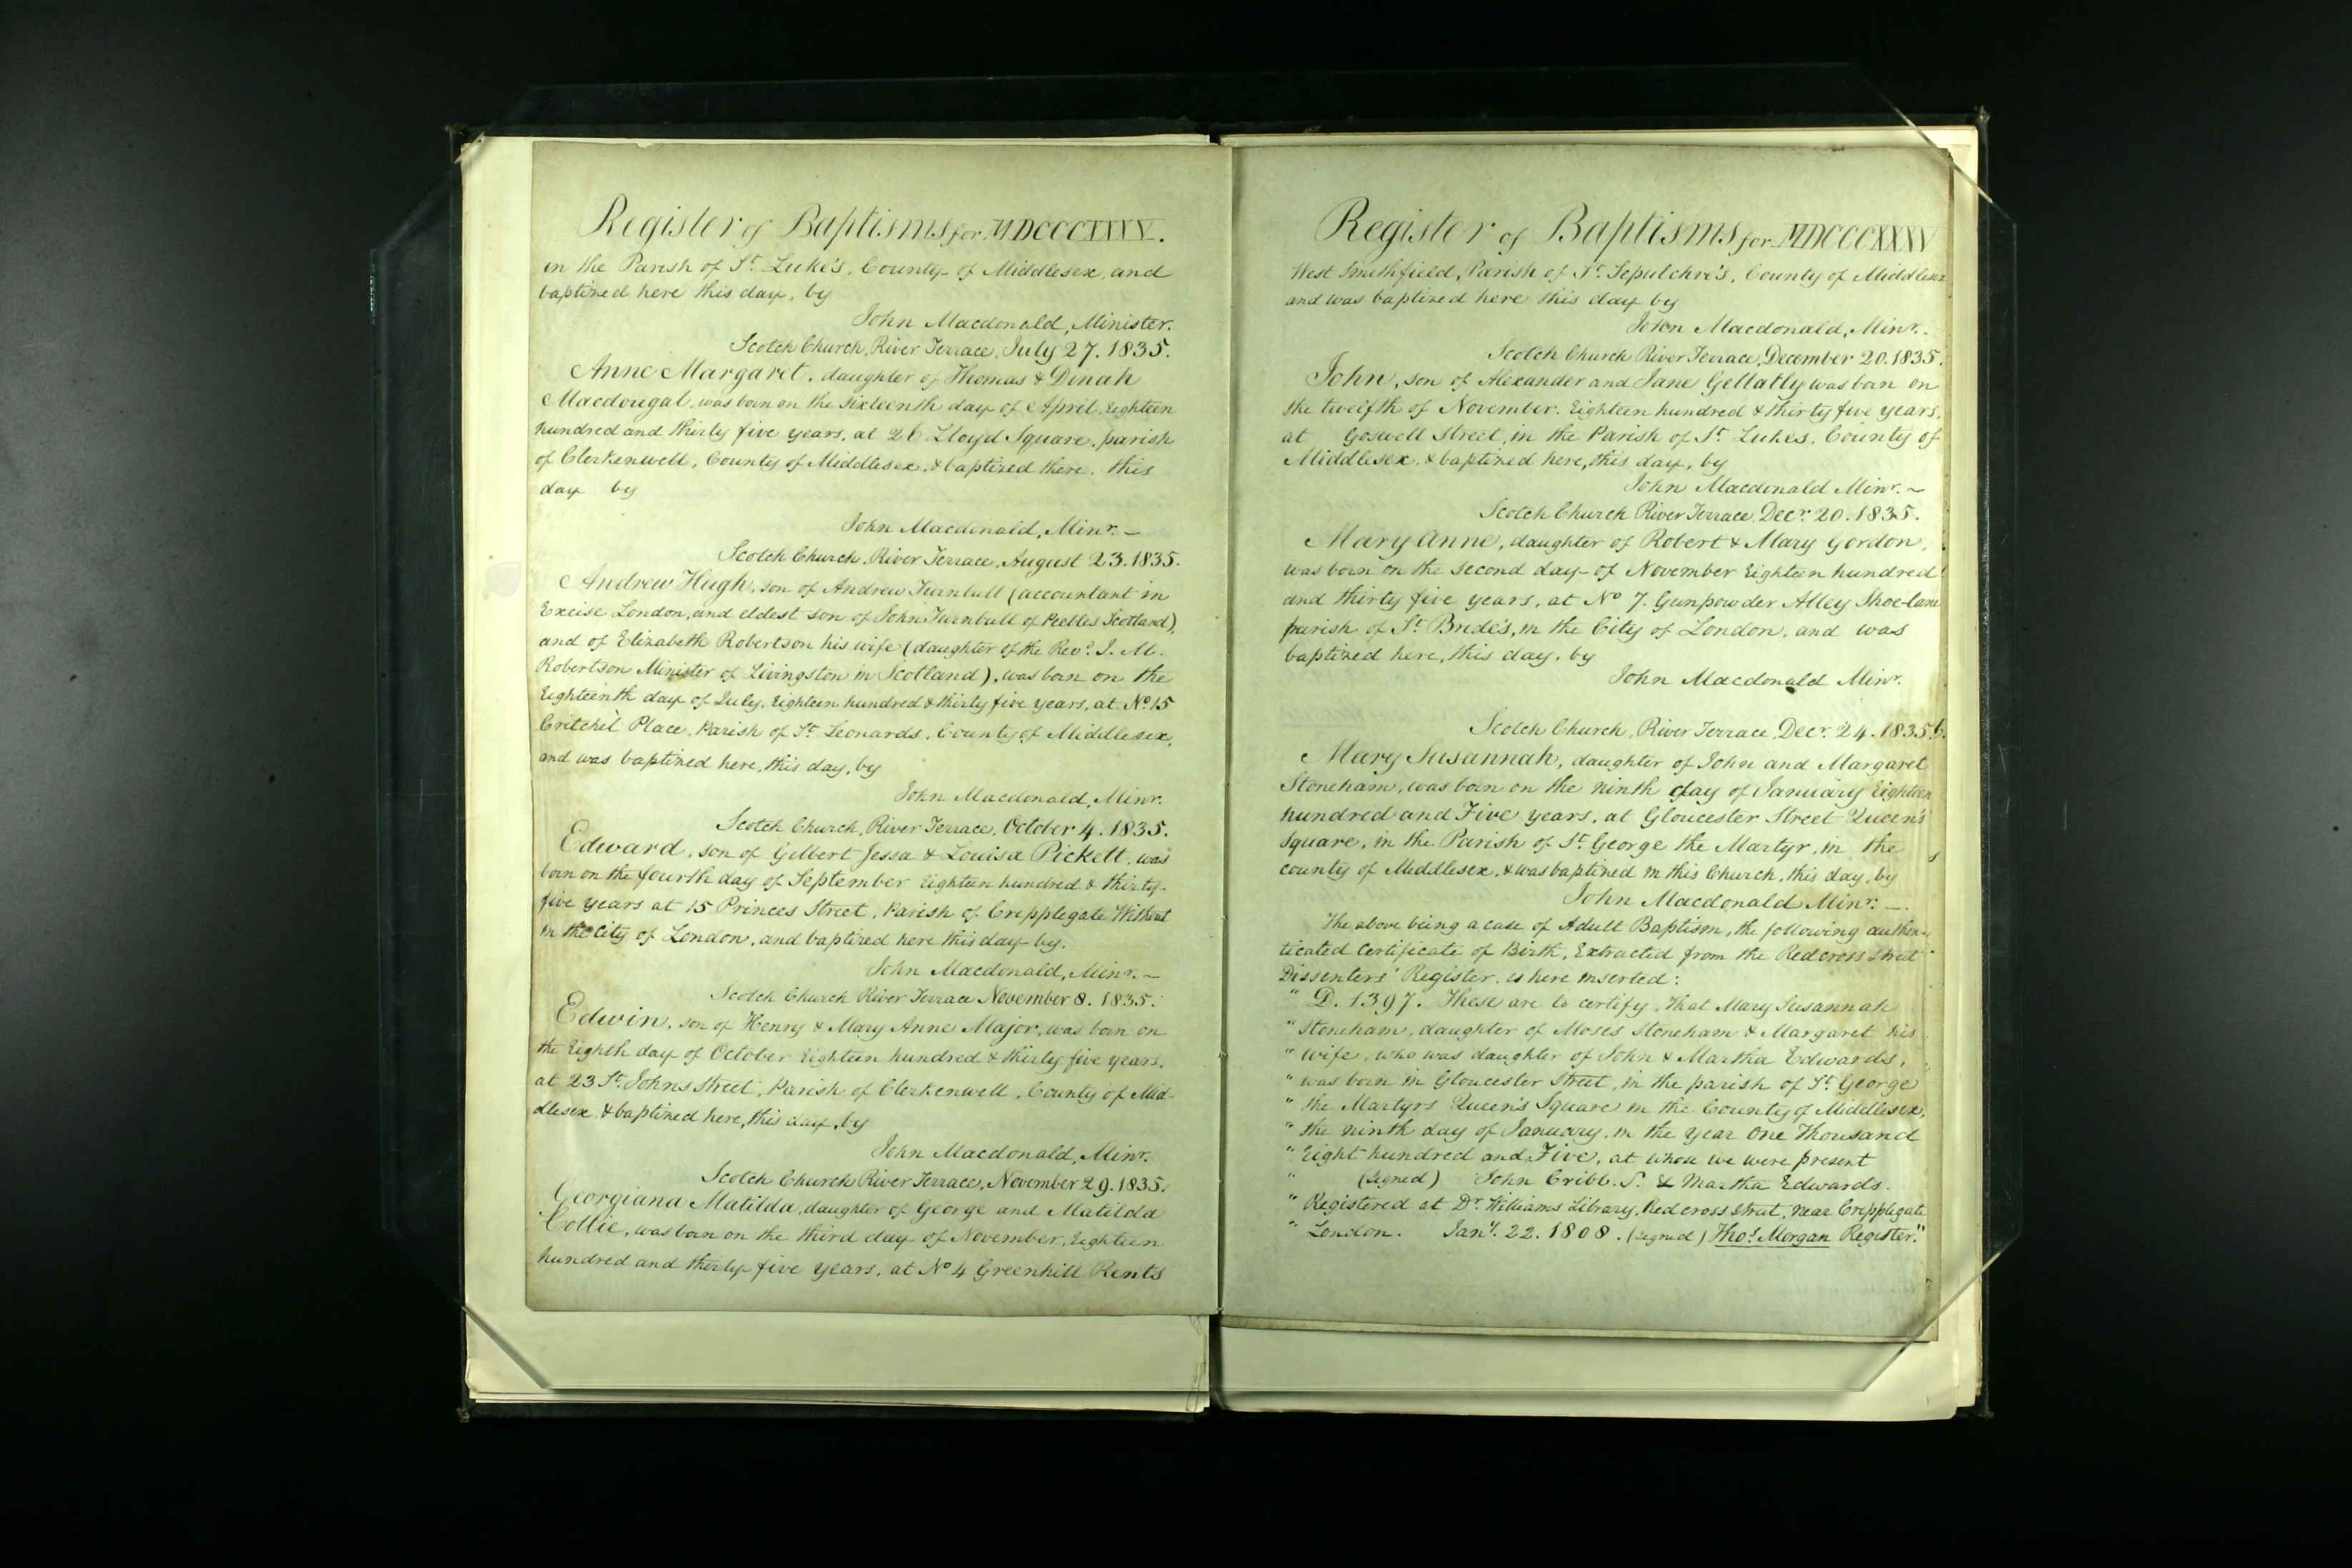 Register of Baptisms for MDCCCXXXV.
in the Parish of St. Luke's, County of Middlesex, and
baptized here this day, by
John Macdonald, Minister.
Scotch Church, River Terrace, July 27. 1835.
Anne Margaret, daughter of Thomas & Dinah
Macdougal, was born on the sixteenth day of April, Eighteen
hundred and thirty five years, at 26 Lloyd Square, parish
of Clerkenwell, County of Middlesex, & baptized there this
day by
John Macdonald, Minr. –
Scotch Church, River Terrace, August 23. 1835.
Andrew Hugh, son of Andrew Turnbull (accountant in
Excise London, and eldest son of John Turnbull of Peebles Scotland),
and of Elizabeth Robertson his wife (daughter of the Revd. J. M.
Robertson Minister of Livingston in Scotland), was born on the
Eighteenth day of July, Eighteen hundred & thirty five years, at No. 15
Critchel Place, Parish of St. Leonards, County of Middlesex,
and was baptized here, this day, by
John Macdonald, Minr.
Scotch Church, River Terrace, October 4. 1835.
Edward, son of Gilbert Jessa & Louisa Pickett, was
born on the fourth day of September Eighteen hundred & thirty-
five years at 15 Princes Street, Parish of Cripplegate Without
in the City of London, and baptized here this day by.
John Macdonald, Minr. –
Scotch Church River Terrace November 8. 1835.
Edwin, son of Henry & Mary Anne Major, was born on
the Eighth day of October Eighteen hundred & thirty five years,
at 23 St. Johns Street, Parish of Clerkenwell, County of Mid-
dlesex & baptized here, this day, by
John Macdonald, Minr.
Scotch Church River Terrace, November 29. 1835.
Georgiana Matilda, daughter of George and Matilda
Collie, was born on the third day of November, Eighteen
hundred and thirty five years, at No 4 Greenhill Rents
Register of Baptisms for MDCCCXXXV
West Smithfield, Parish of St. Sepulchre's, County of Middlesex
and was baptized here this day by
John Macdonald, Minr.
Scotch Church River Terrace, December 20. 1835.
John, son of Alexander and Jane Gellatly was born on
the twelfth of November, Eighteen hundred & thirty five years,
at Goswell Street, in the Parish of St. Lukes, County of
Middlesex, & baptized here, this day, by
John Macdonald Minr. ~
Scotch Church River Terrace, Decr. 20. 1835.
Mary Anne, daughter of Robert & Mary Gordon,
was born on the second day of November Eighteen hundred
and thirty five years, at No 7. Gunpowder Alley Shoe-lane
parish of St. Bride's, in the City of London, and was
baptized here, this day, by
John Macdonald Minr.
Scotch Church, River Terrace, Decr. 24. 1835.
Mary Susannah, daughter of John and Margaret
Stoneham, was born on the ninth day of January Eighteen
hundred and Five years, at Gloucester Street Queen's
Square, in the Parish of St. George the Martyr, in the
county of Middlesex, & was baptized in this Church, this day, by
John Macdonald Minr. –.
The above being a case of Adult Baptism, the following authen-
ticated Certificate of Birth, Extracted from the Redcross Street
Dissenters' Register, is here inserted:
" D. 1397. These are to certify, that Mary Susannah
" Stoneham, daughter of Moses Stoneham & Margaret his
" wife, who was daughter of John & Martha Edwards,
" was born in Gloucester Street, in the parish of St. George
" the Martyrs Queen's Square in the County of Middlesex,
" the ninth day of January, in the year One Thousand
" Eight hundred and Five, at whose we were present
" (signed) John Cribb. S. & Martha Edwards.
" Registered at Dr. Williams Library, Redcross Street, near Cripplegate
" London. Jany. 22. 1808. (signed) Thos. Morgan Register."